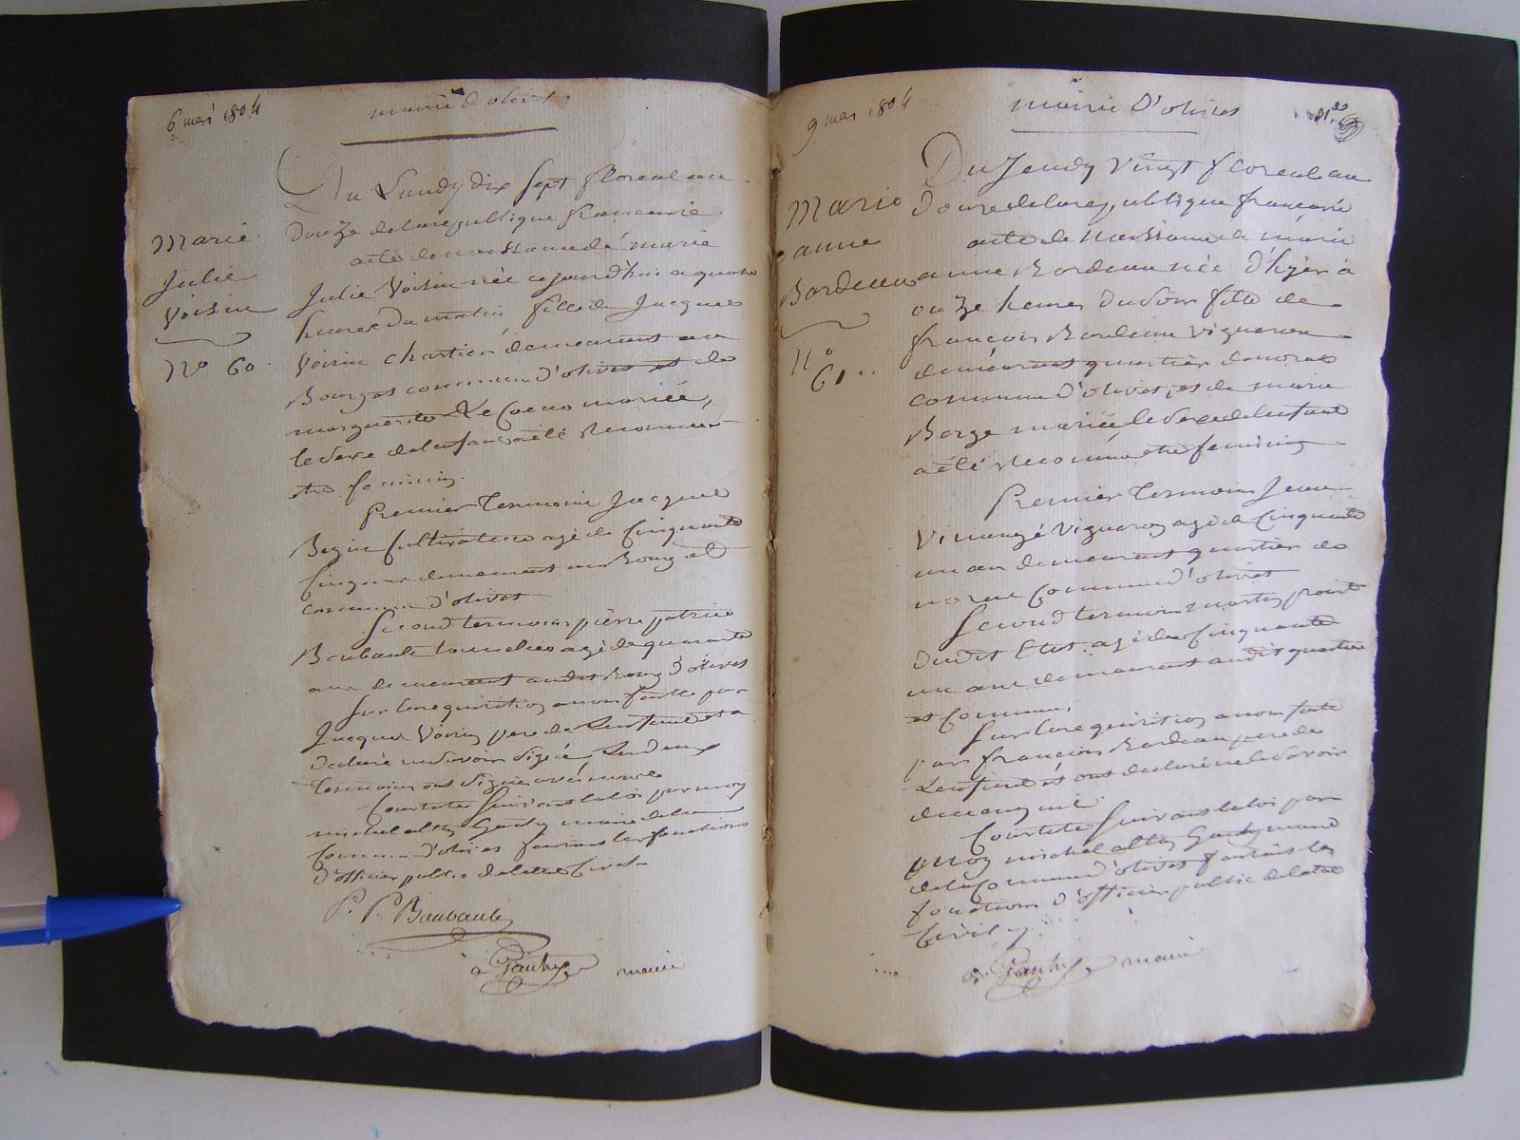 6 mai 1804
mairie d'olivet
Du Lundy dix sept floreal an
Marie
Julie
Voisin
No 60
douze de la republique francaisie
acte de naissance de marie
Julie Voisin née ce jourd'hui a quatre
heures du matin fille de Jacques
Voisin chartier demeurant au
Bourg et commune d'olivet et de
marguerite mariée,
le sexe de lenfant a été reconnu
etre feminin.
Premier temoin Jacque
Begin cultivateur agé de cinquante
cinq ans demeurant au Bourg et
commune d'olivet
Second temoin pierre patrice
Boubault agé de quarante
ans demeurant audit Bourg d'olivet
Sur la requisition a nous faitte par
Jacques Voisin pere de Lenfant et a
declaré ne savoir signé Les deux
temoins ont signé avec nous
Constaté suivant la loi par moy
michel alby Gaudy maire de la
Commune d'olivet faisant les fonctions
d'officier public de letat Civil
P. P. Baubault
a Gaudy maire
9 mai 1804
mairie D'olivet
Du Jeudy Vingt floreal an
Marie
anne
Bordeau
no
61
Douze de la republique francaisie
acte de Naissance de marie
anne Bordeau née d'hyer à
onze heures du soir fille de
françois Bordeau vigneron
demeurant quartier de
commune d'olivet, et de marie
Berge mariée le sexe de lenfant
a été reconnu etre feminin
Premier temoin Jean
vigneron agé de cinquante
un an demeurant quartier de
commune d'olivet
Second temoin martin
dudit Etat agé de cinquante
un ans demeurant audit quartier
et commune,
Sur la requisition a nous faite
par françois Bordeau pere de
Lenfant et ont declaré ne le savoir
de ce enquis
Constaté suivant la loi par
moy michel alby Gaudy maire
de la Commune d'olivet faisant les
fonctions d'officier public de letat
Civil
a Gaudy maire